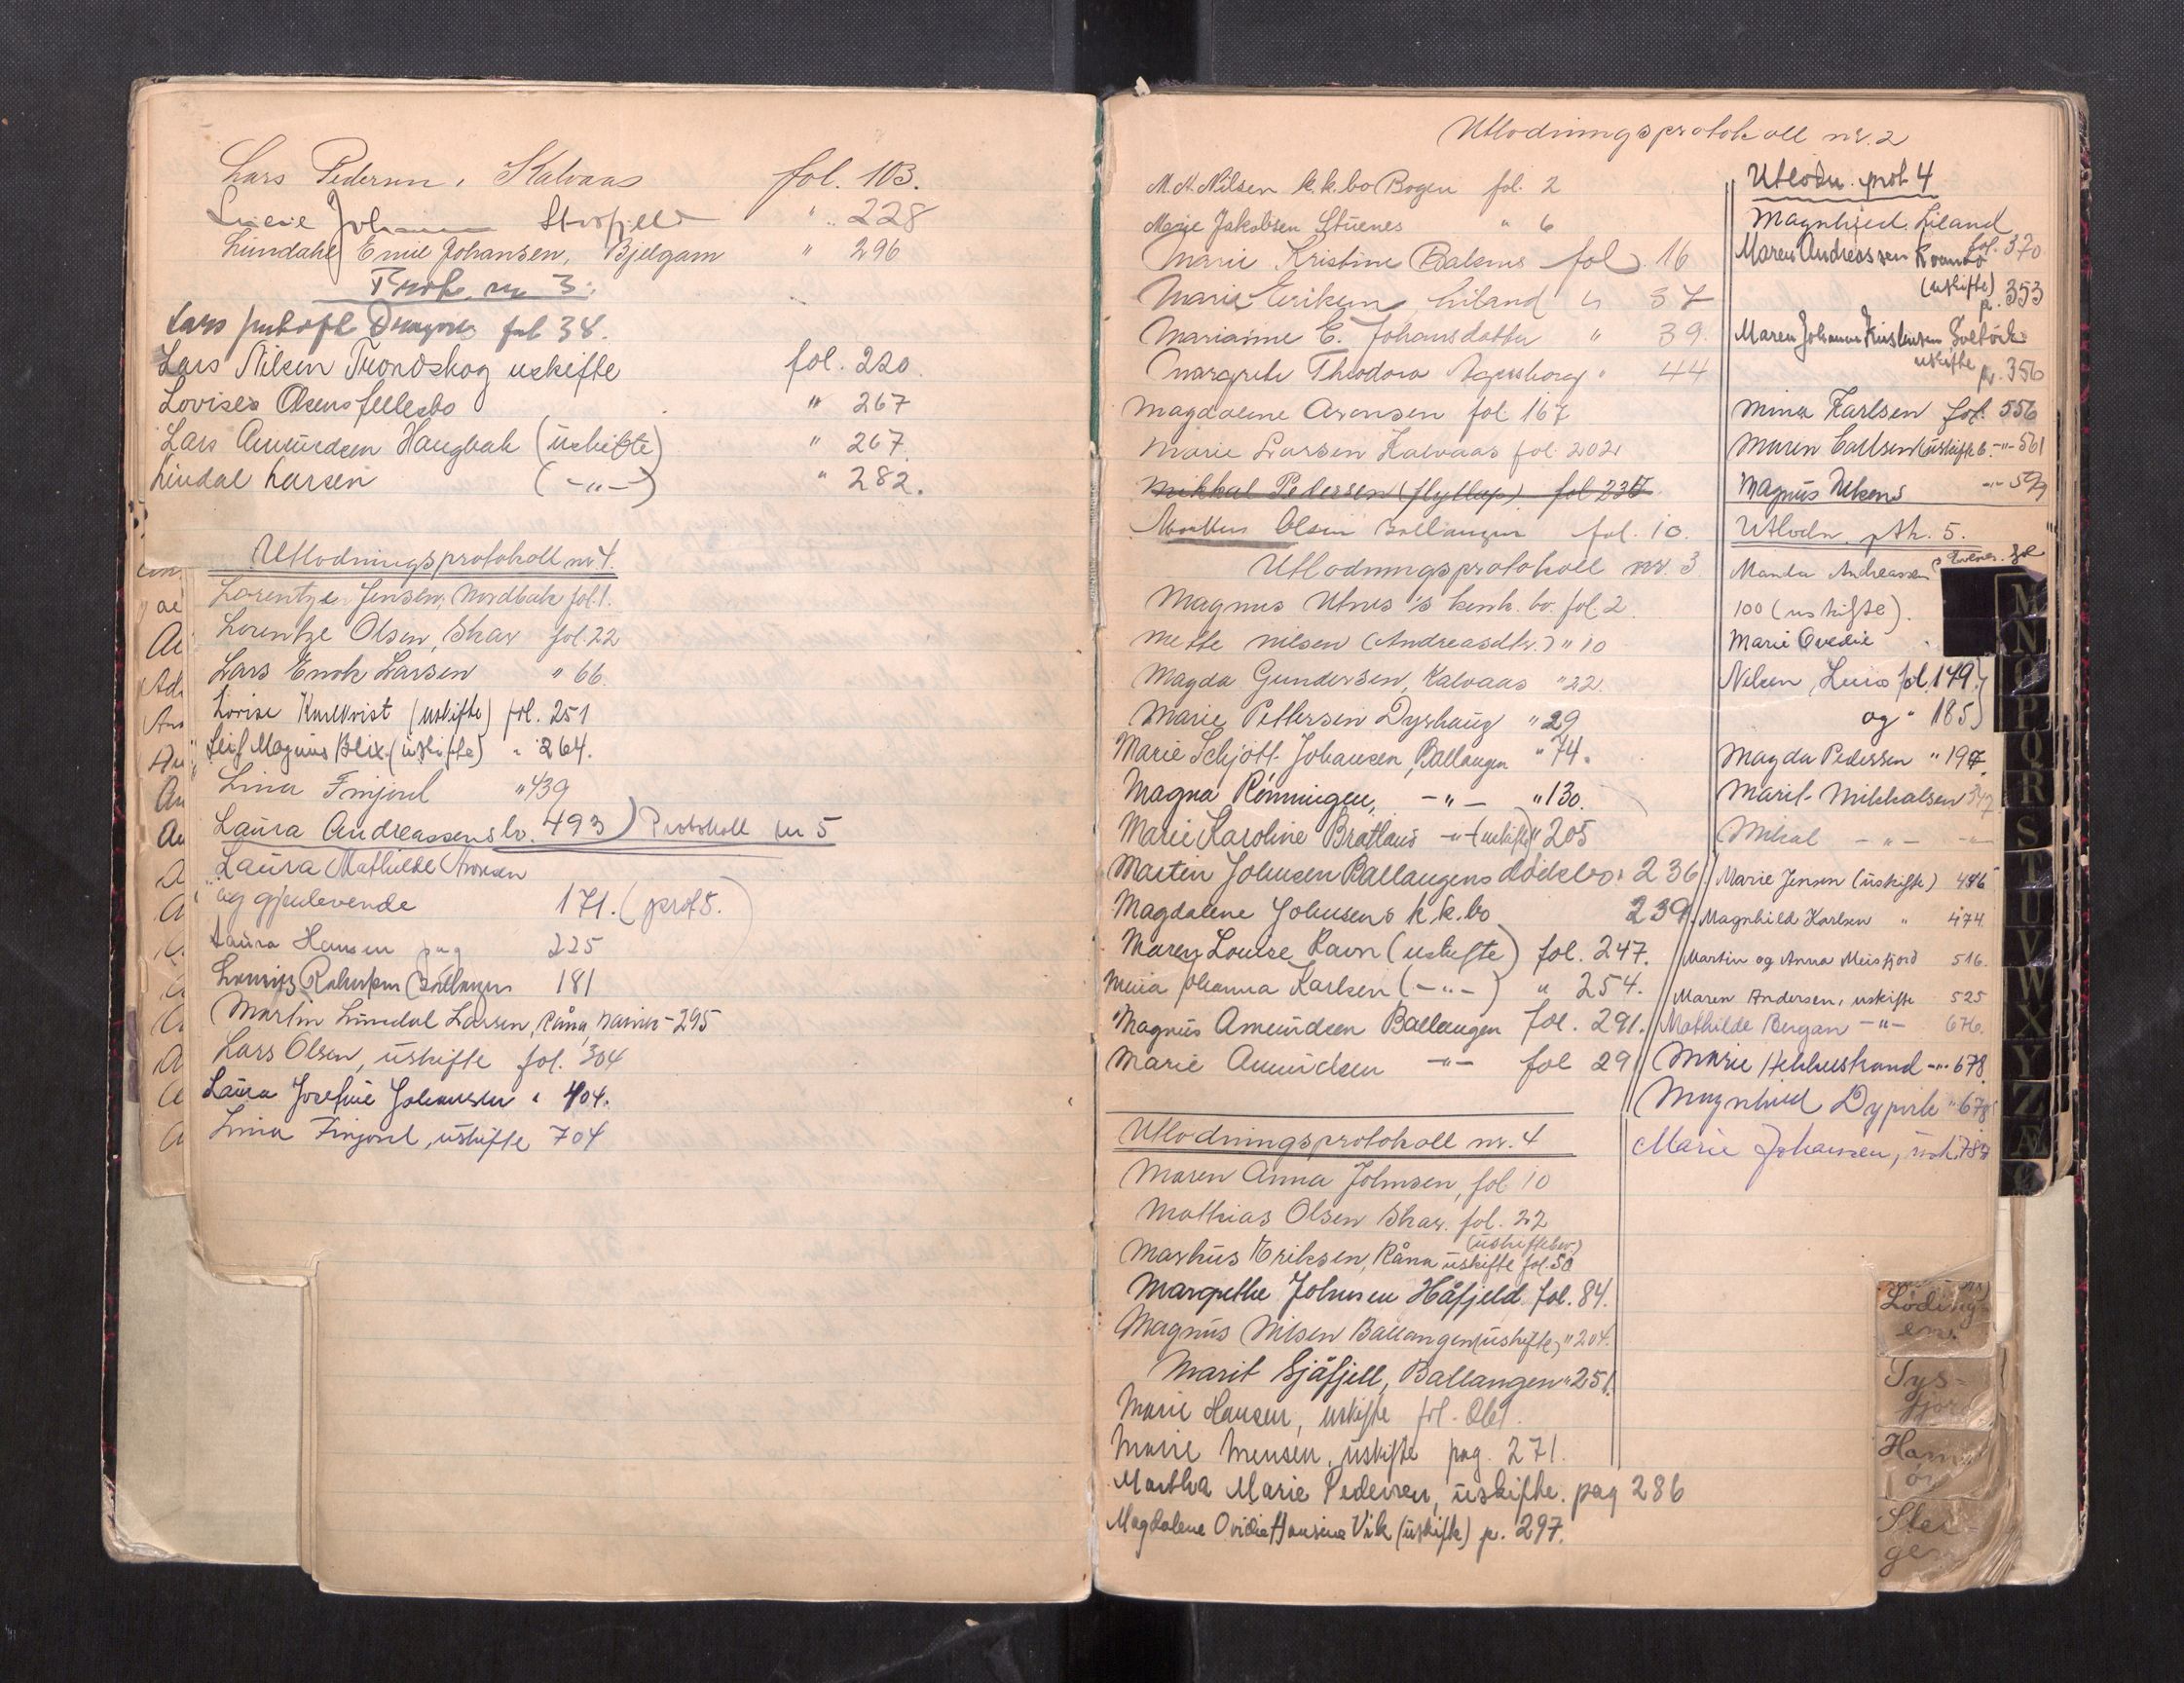 Lars Pedersen, Kalvaas fol. 103.
Johansen " 228
Lindahl Emil Johansen, Bjelgam " 296
Prot. nr 3.
Lars fol 38.
Lars Nilsen Trondskog uskifte fol. 220.
Lovises Olsens fellesbo " 267
Lars Amundsen Haugbak (uskifte) " 267.
Lindal Larsen (-"-) " 282.
Utlodningsprotokoll nr 4.
Lorentze Jensen, Nordbak fol. 1.
Lorentze Olsen, Skar fol. 22
Lars Enok Larsen " 66.
Lovise Karlkvist (uskifte) fol. 251
Leif Magnus Blix (uskifte) " 264.
Lina Finjord " 439
Laura Andreassens bo. 493) Protokoll nr 5
Laura Mathilde Aronsen
og gjenlevende 171. (prot 5.)
Laura Hansen pag 225
Ballangen 181
Martin Lindal Larsen, Råna, - 295
Lars Olsen, uskifte fol. 304
Laura Josefine Johansen " 404.
Lina Finjord, uskifte 704
Utlodningsprotokoll nr. 2
M. A. Nilsen k.k. bo Bogen fol. 2
Marie Jakobsen Stunes " 6
Marie Kristine Balsnes fol. 16
Marie Eriksen, Liland " 37
Marianne E. Johansdatter " 39.
Margrete Theodora Agersborg " 44
Magdalene Aronsen fol 167
Marie Larsen Kalvaas fol. 202
Mikkal Petersen (flyttap) fol 237
Markus Olsen Ballangen fol. 10.
Utlodningsprotokoll nr. 3
Magnus Utnes's konk. bo. fol. 2.
Mette Nilsen (Andreasdtr.) " 10
Magda Gundersen, Kalvaas " 22.
Marie Pettersen Dyrhaug " 29
Marie Schjött Johansen, Ballangen " 74.
Magna Rönningen, -"- " 130.
Marie Karoline Bratlaus -"- (uskifte) " 205
Martin Johnsen Ballangens dödsbo: 236
Magdalene Johnsens k.k. bo 239
Maren Louise Ravn (uskifte) fol. 247.
Johanna Karlsen (-"-) " 254.
Magnus Amundsen Ballangen fol. 291.
Marie Amundsen -"- fol 291
Utlodningsprotokoll nr. 4
Maren Anna Johnsen, fol 10
Mathias Olsen Skar. fol. 22
(uskiftebo)
Markus Eriksen, Råna uskifte fol. 50
Margrethe Johnsen Håfjeld fol. 84.
Magnus Nilsen Ballangen (uskifte) " 204.
Marit Sjåfjell, Ballangen " 251.
Marie Hansen, uskifte fol. 261.
Marie Mensen, uskifte pag. 271.
Martha Marie Pedersen, uskifte. pag 286
Magdalene Ovidia Hansine Vik (uskifte) p. 297.
Utlodn. prot 4
Magnhild Liland
fol. 370
Maren Andreassen Kvandö
(uskifte) p. 353
Maren Johanne Kristensen
uskifte p. 356
Mina Karlsen fol. 556
Maren Carlsen (uskifte b. -"- 561
Magnus Utkens -"- 579
Utlodn. ptk. 5.
Manda Andreassen
100 (uskifte).
Marie Ovedie
Nilsen, Luis fol 149.)
og " 185)
Magda Pedersen " 197.
Marit Mikkalsen 347
Mikal -"- -"-
Marie Jensen (uskifte) 446
Magnhild Karlsen " 474
Martin og Anna Meisfjord 516.
Maren Andersen, uskifte 525
Mathilde Bergan -"- 676.
Marie Hekkelstrand -"- 678.
Magnhild Dypvik " 678
Marie Johansen, usk. 787
M
N
O
P
Q
R
S
T
U
V
W
X
Y
Z
Æ
Ö
Löding-
en.
Tys-
fjord
Ham-
ör
Stei-
gen